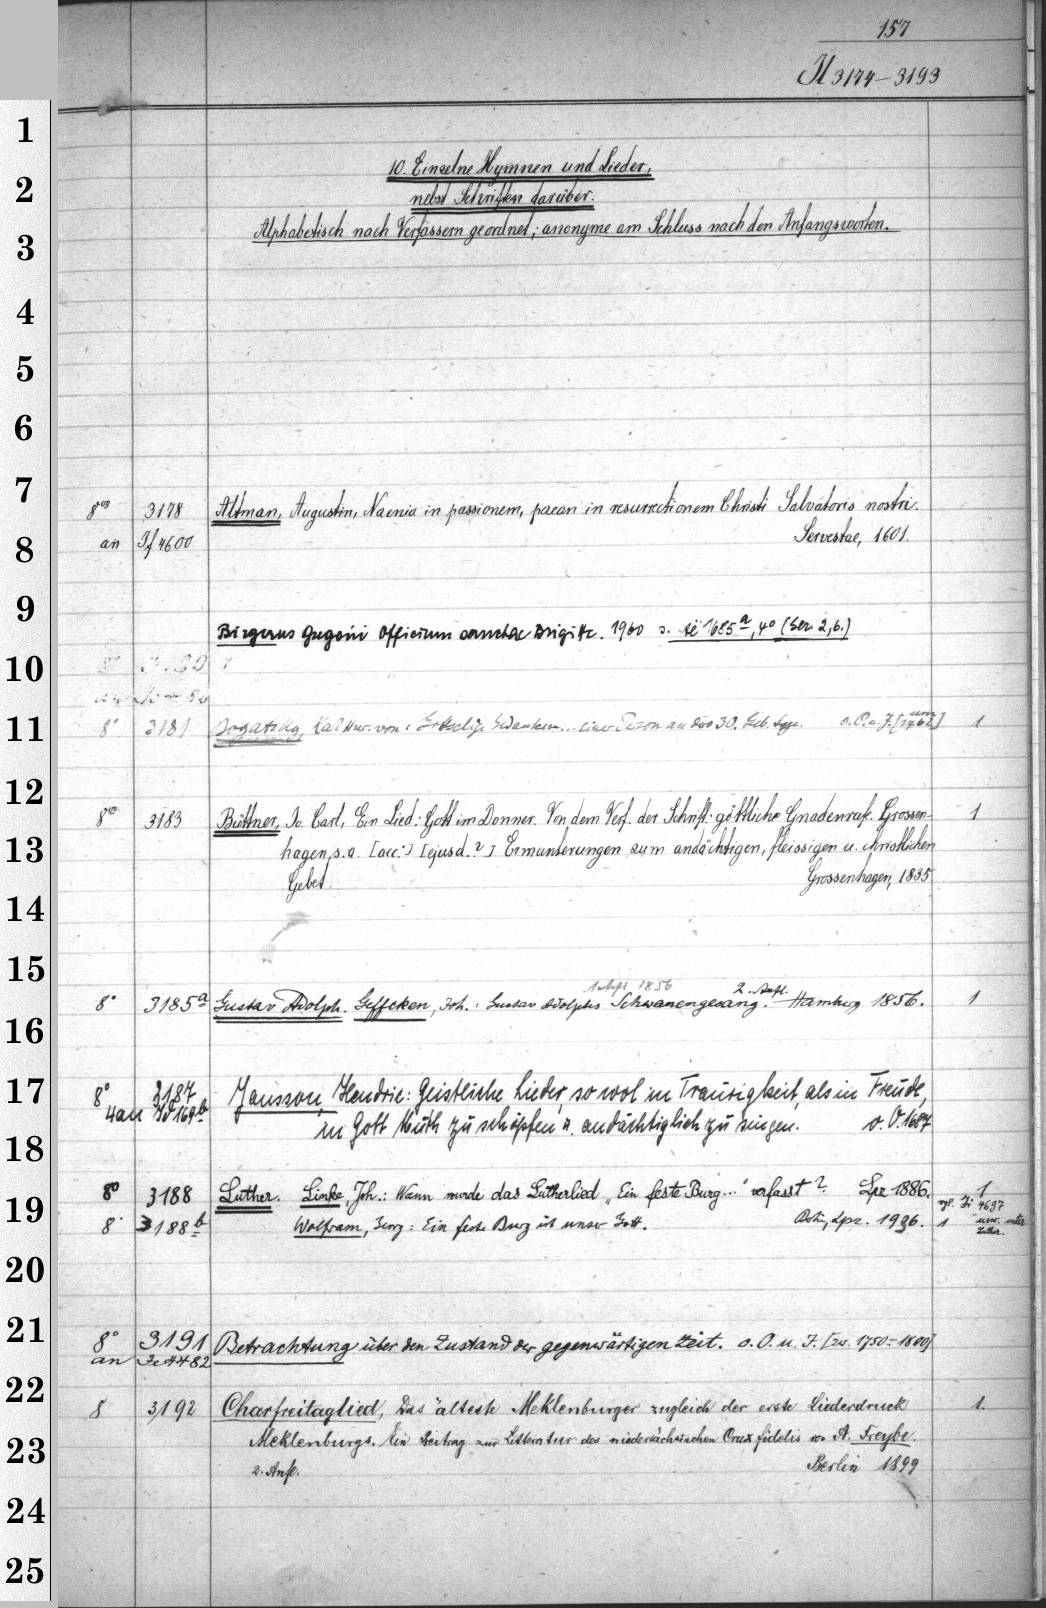 157
Il 3174-3193
10. Einzelne Hymnen und Lieder,
nebst Schriften darüber.
Alphabetisch nach Verfassern geordnet; anonyme am Schluss nach den Anfangsworten.
8vo 3178 Altman, Augustin, Naenia in passionem, paean in resurrectionem Christi Salvatoris nostri.
an If 4600 Servestae, 1601.
Birgerus Gregorii Officium sanctae Birgitte. 1960 s. 1685a, 4° (Ser. 2,6.)
8° 3181 Bogatzky, Karl von: Gedanken... einer Person an das 30. o. O. u. J. [um 1762] 1
8vo 3183 Büttner, Jo. Carl, Ein Lied: Gott im Donner. Von dem Verf. der Schrift: göttliche Gnadenruf. Grossen- 1
hagen, s.a. [acc:] [ejusd.?] Ermunterungen zum andächtigen, fleissigen u. christlichen
Gebet. Grossenhagen, 1835
1856 2. Aufl.
8° 3185a Gustav Adolph. Geffcken, Joh.: Gustav Adolphs Schwanengesang. Hamburg 1856. 1
8° 3187 Jansson, Hendric: Geistliche Lieder, so wol in Traurigkeit, als in Freude,
4an 169b in Gott Muth zu schöpfen u. andächtiglich zu singen. o. O. 1687
8° 3188 Luther. Linke, Joh.: Wann wurde das Lutherlied „Ein feste Burg..." verfasst? Lpz 1886. 1
vgl. 4697
8° 3188b Wolfram, Georg: Ein feste Burg ist unser Gott. Bln., Lpz. 1936. 1 usw. unter
Luther.
8° 3191 Betrachtung über den Zustand der gegenwärtigen Zeit. o. O. u. J. [zw. 1750-1800]
an 4482
8 3192 Charfreitaglied, Das älteste Meklenburger zugleich der erste Liederdruck 1.
Meklenburgs. Ein Beitrag zur Litteratur des niedersächsischen Crux fidelis von A. Freybe.
2. Aufl. Berlin 1899
1
2
3
4
5
6
7
8
9
10
11
12
13
14
15
16
17
18
19
20
21
22
23
24
25